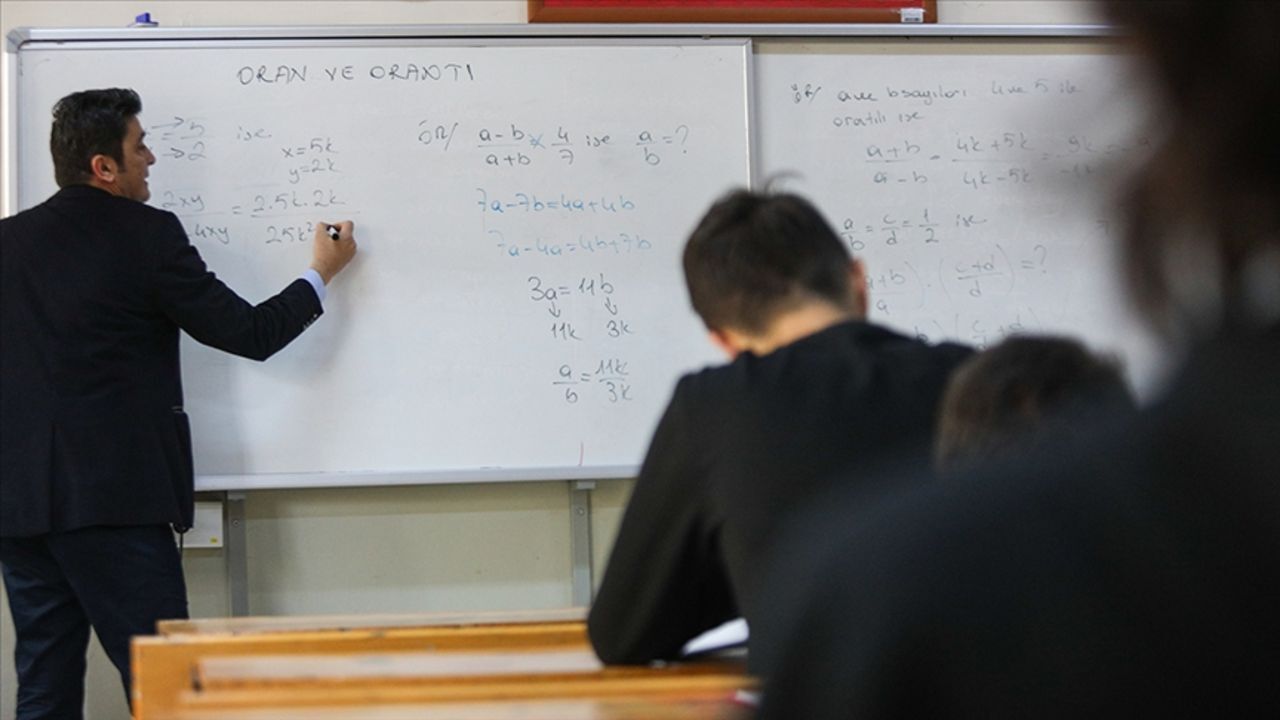 ORAN VE ORANTI
→ 5 ise
→ 2
x=5k
y=2k
2xy = 2.5k.2k
4xy 25k²
ÖR/ a-b / a+b = 4/7 ise a/b = ?
7a-7b=4a+4b
7a-4a=4b+7b
3a=11b
11k 3k
a/b = 11k/3k
ÖR/ a ve b sayıları 4 ve 5 ile
orantılı ise
a+b / a-b = 4k+5k / 4k-5k = 9k
a/b = c/d = 1/2 ise
(a+b / a) . (c+d / d) = ?